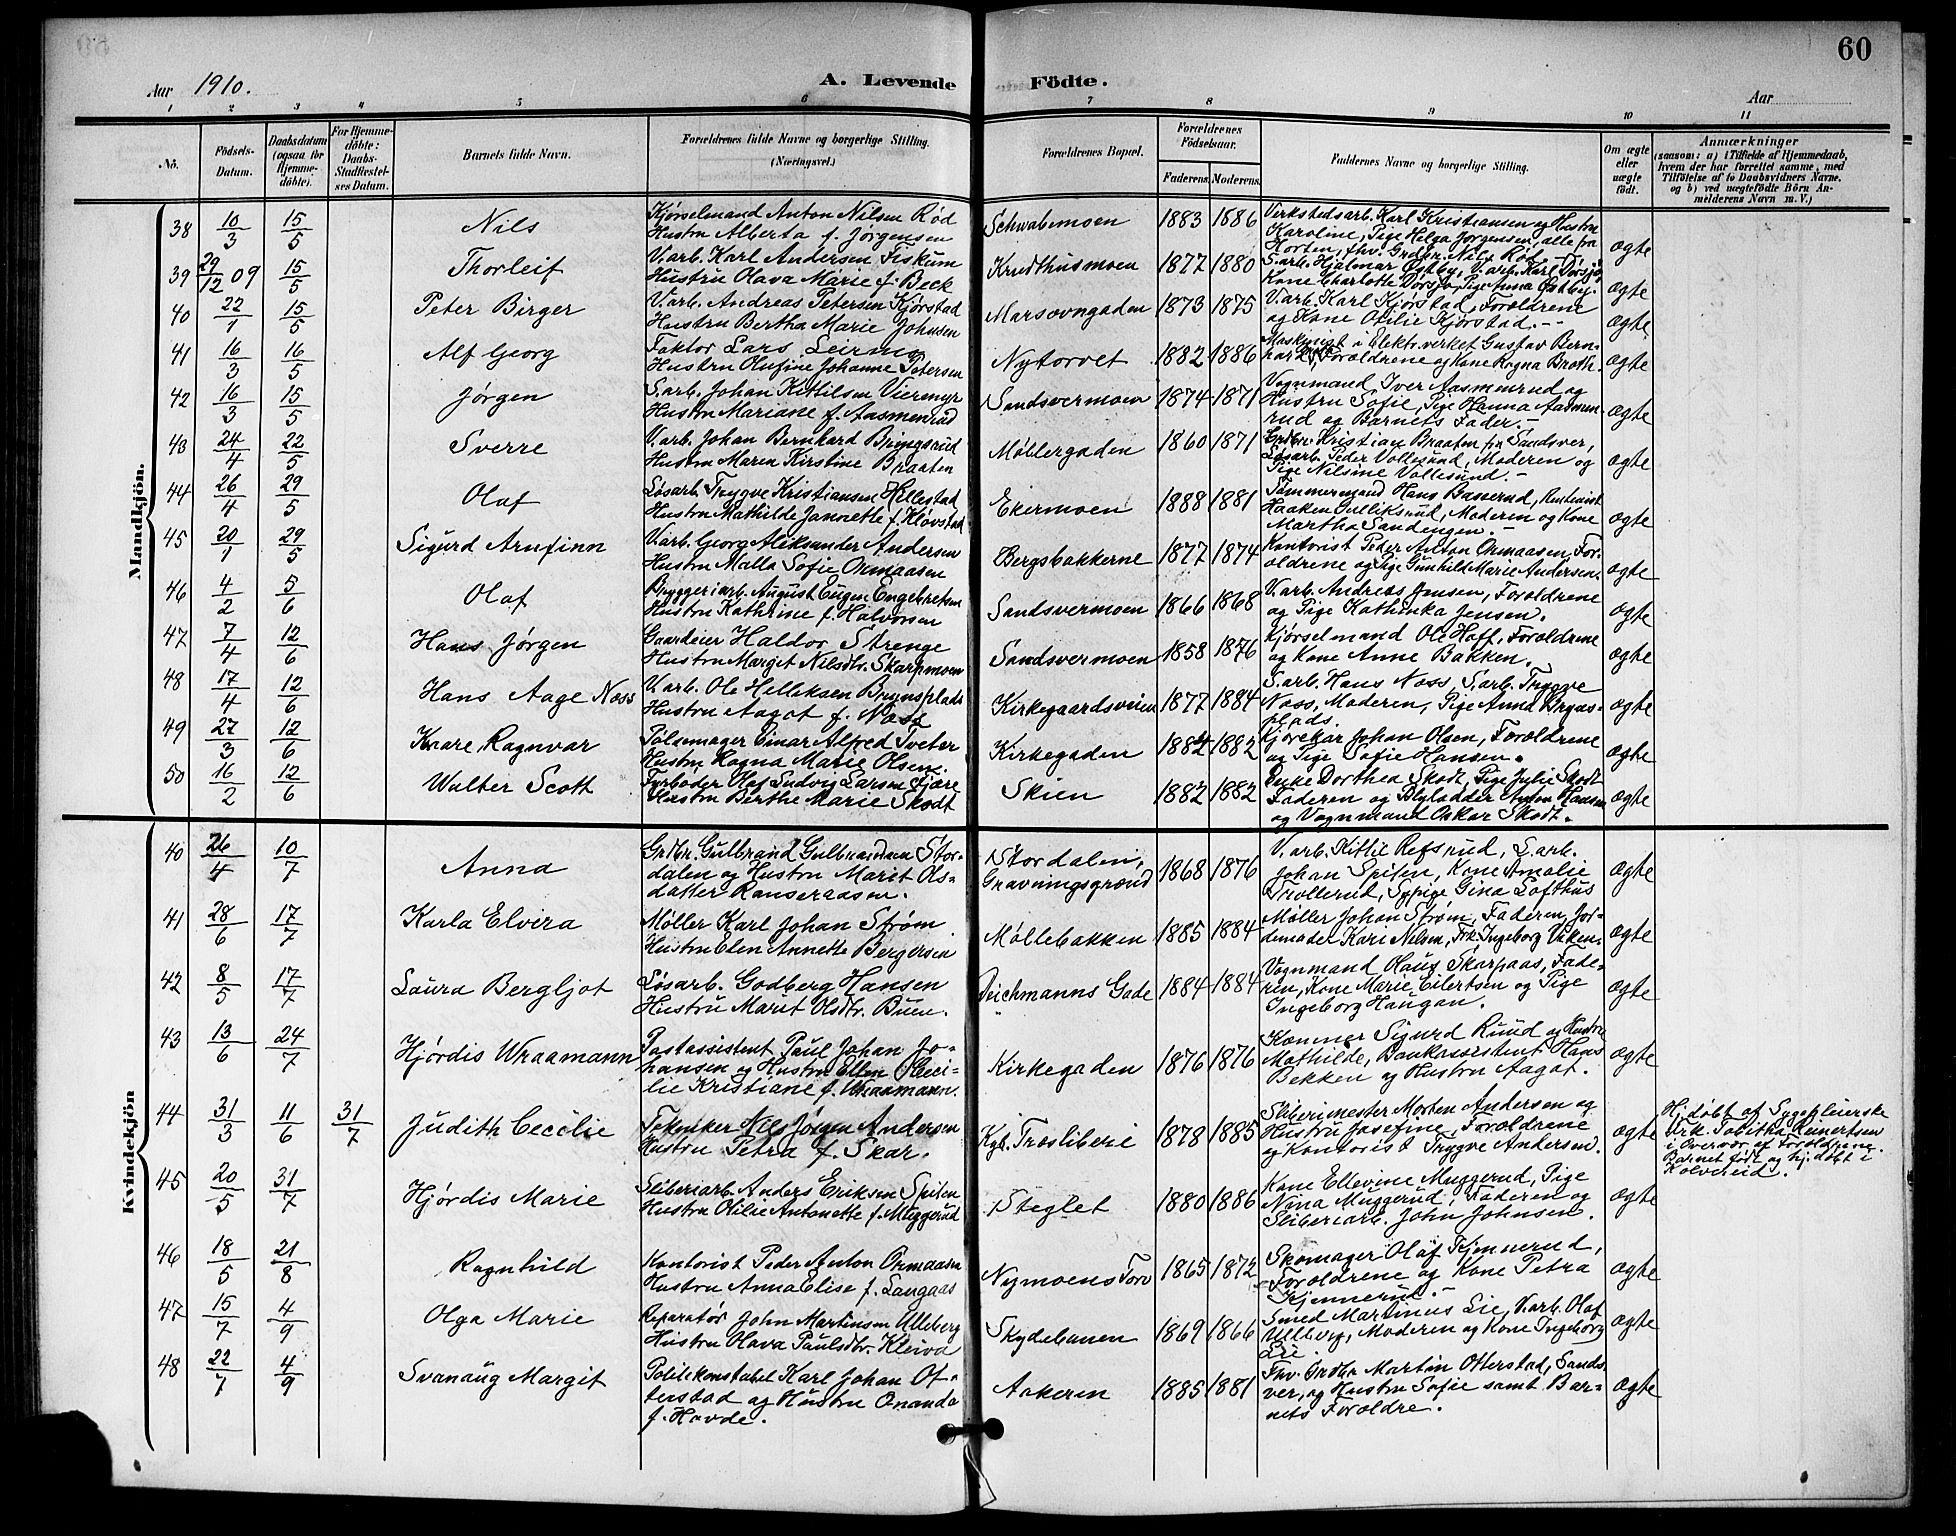 60
Aar 1910.
A. Levende Födte.
Aar
1 2 3 4 5 6 7 8 9 10 11
No.
Födsels-Datum.
Daabsdatum (ogsaa for Hjemme-döbte).
For Hjemme-döbte: Daabs-Stadfæstel-ses Datum.
Barnets fulde Navn.
Forældrenes fulde Navne og borgerlige Stilling. (Næringsvei.)
Forældrenes Bopæl.
Forældrenes Födselsaar.
Faderens. Moderens.
Faddernes Navne og borgerlige Stilling.
Om ægte eller uægte födt.
Anmærkninger
(saasom: a) i Tilfælde af Hjemmedaab,
hvem der har forrettet samme, med
Tilföielse af to Daabsvidners Navne,
og b) ved uægtefödte Börn An-
melderens Navn m. V.)
Mandkjön.
38 10/3 15/5 Nils
Kjørselmand Anton Nilsen Rød
Hustru Alberta f. Jørgensen
Schwabemoen 1883 1886
Verkstedsarb. Karl Kristiansen og Hustru
Karoline, Pige Helga Jørgensen, alle fra
Horten, fhv. Grdbr. Nils Rød
ægte
39 29/12 09 15/5 Thorleif
V.arb. Karl Andersen Fiskum
Hustru Olava Marie f. Beck
Krudthusmoen 1877 1880
S.arb. Hjalmar Østby, V.arb. Karl Vorsjø,
Kone Charlotte Vorsjø, Pige Anna Østby.
ægte
40 22/1 15/5 Peter Birger
V.arb. Andreas Petersen Kjørstad
Hustru Bertha Marie Johnsen
Marsovngaden 1873 1875
V.arb. Karl Kjørstad, Forældrene
og Kone Otilie Kjørstad.
ægte
41 16/3 16/5 Alf Georg
Faktor Lars Leirnes
Hustru Olufine Johanne Petersen
Nytorvet 1882 1886
Maskinist i Elektr.verket Gustav Bern-
hard, Forældrene og Kone Ragna Brath.
ægte
42 16/3 15/5 Jørgen
S.arb. Johan Kittilsen Viermyr
Hustru Mariane f. Aasmenrud
Sandsvermoen 1874 1871
Vognmand Iver Aasmenrud og
Hustru Sofie, Pige Hanna Aasmen-
rud og Barnets Fader.
ægte
43 24/4 22/5 Sverre
V.arb. Johan Bernhard Bryggsrud
Hustru Maren Kirstine Braaten
Møllergaden 1860 1871
Grdbr. Kristian Braaten fra Sandsver,
Løsarb. Peder Vollesund, Moderen og
Pige Nilsine Vollesund.
ægte
44 26/4 29/5 Olaf
Løsarb. Trygve Kristiansen Hellestad
Hustru Mathilde Jannette f. Kløvstad
Ekermoen 1888 1881
Tømmermand Hans Basserud, Rentenist
Haaken Gulliksrud, Moderen og Kone
Martha Sandengen.
ægte
45 20/1 29/5 Sigurd Arnfinn
V.arb. Georg Aleksander Andersen
Hustru Malla Sofie Ormaasen
Bergsbakkerne 1877 1874
Kontorist Peder Anton Ormaasen, For-
ældrene og Pige Gunhild Marie Andersen.
ægte
46 4/2 5/6 Olaf
Bryggeriarb. August Eugen Engebretsen
Hustru Kathrine f. Halvorsen
Sandsvermoen 1866 1868
V.arb. Andreas Jensen, Forældrene
og Pige Kathinka Jensen.
ægte
47 7/4 12/6 Hans Jørgen
Gaardeier Haldor Strenge
Hustru Margit Nilsdtr. Skarpmoen
Sandsvermoen 1858 1876
Kjørselmand Ole Hoff, Forældrene
og Kone Anne Bakken.
ægte
48 17/4 12/6 Hans Aage Næss
V.arb. Ole Helleksen Brynsplads
Hustru Aagot f. Næss
Kirkegaardsveien 1877 1884
S.arb. Hans Næss, S.arb. Trygve
Næss, Moderen, Pige Anna Bryns-
plads.
ægte
49 27/3 12/6 Kaare Ragnvar
Pølsemager Einar Alfred Tveter
Hustru Ragna Marie Olsen.
Kirkegaden 1884 1882
Kjørekar Johan Olsen, Forældrene
og Pige Sofie Hansen.
ægte
50 16/2 12/6 Walter Scott
Fyrbøder Olaf Ludvig Larsen Fjære
Hustru Berthe Marie Skodt
Skien 1882 1882
Enke Dorthea Skodt, Pige Julie Skodt
Faderen og Blyladder Anton Hansen
og Vognmand Oskar Skodt.
ægte
Kvindekjön
40 26/4 10/7 Anna
Grdbr. Gulbrand Gulbrandsen Stor-
dalen og Hustru Marit Ols-
datter
Stordalen, Gravningsgrænd 1868 1876
V.arb. Kittil Refsrud, S.arb.
Johan Spiten, Kone Amalie
Trollerud, Sypige Gina Lofthus
ægte
41 28/6 17/7 Karla Elvira
Møller Karl Johan Strøm
Hustru Elen Annette Bergersen
Møllebakken 1885 1884
Møller Johan Strøm, Faderen, Jor-
demoder Kari Nilsen, Frk. Ingeborg Viken.
ægte
42 8/5 17/7 Laura Bergljot
Løsarb. Godberg Hansen
Hustru Marit Olsdtr. Buen.
Deichmanns Gade 1884 1884
Vognmand Olaus Skarpaas, Fade-
ren, Kone Marie Eilertsen og Pige
Ingeborg Haugan.
ægte
43 13/6 24/7 Hjørdis Wraamann
Postassistent Paul Johan Jo-
hansen og Hustru Ellen Ceci-
lie Kristiane f. Wraamann.
Kirkegaden 1876 1876
Kæmner Sigurd Ruud og Hustru
Mathilde, Bankassistent Hans
Bekken og Hustru Aagot.
ægte
44 31/3 11/6 31/7 Judith Cecilie
Tekniker Nils Jørgen Andersen
Hustru Petra f. Skar.
Kgb. Træsliberi 1878 1885
Sliberimester Morten Andersen og
Hustru Josefine, Forældrene
og Kontorist Trygve Andersen.
ægte
Hj.døbt af Sygepleierske
Frk. Tabitha Reinertsen
i Overvær af Forældrene.
Barnet født og hj.døbt i
Kolvereid.
45 20/5 31/7 Hjørdis Marie
Sliberiarb. Anders Eriksen Spiten
Hustru Otilie Antonette f. Muggerud
Steglet 1880 1886
Kone Ellevine Muggerud, Pige
Nina Muggerud, Faderen og
Sliberiarb. John Johnsen.
ægte
46 18/5 21/8 Ragnhild
Kontorist Peder Anton Ormaasen
Hustru Anna Elise f. Langaas
Nymoens Torv 1865 1872
Skomager Olaf Kjennerud,
Forældrene og Kone Petra
Kjennerud.
ægte
47 15/7 4/9 Olga Marie
Reparatør John Martinsen Ulleberg
Hustru Olava Paulsdtr. Kleiva
Skydebanen 1869 1866
Smed Martinus Lie, V.arb. Olaf
Ulleberg, Moderen og Kone Ingeborg
Lie.
ægte
48 22/7 4/9 Svanaug Margit
Politikonstabel Karl Johan Ot-
terstad og Hustru Ananda
f. Hovde.
Aakeren 1885 1881
Fhv. Grdbr. Martin Otterstad, Sands-
ver, og Hustru Sofie samt Bar-
nets Forældre.
ægte